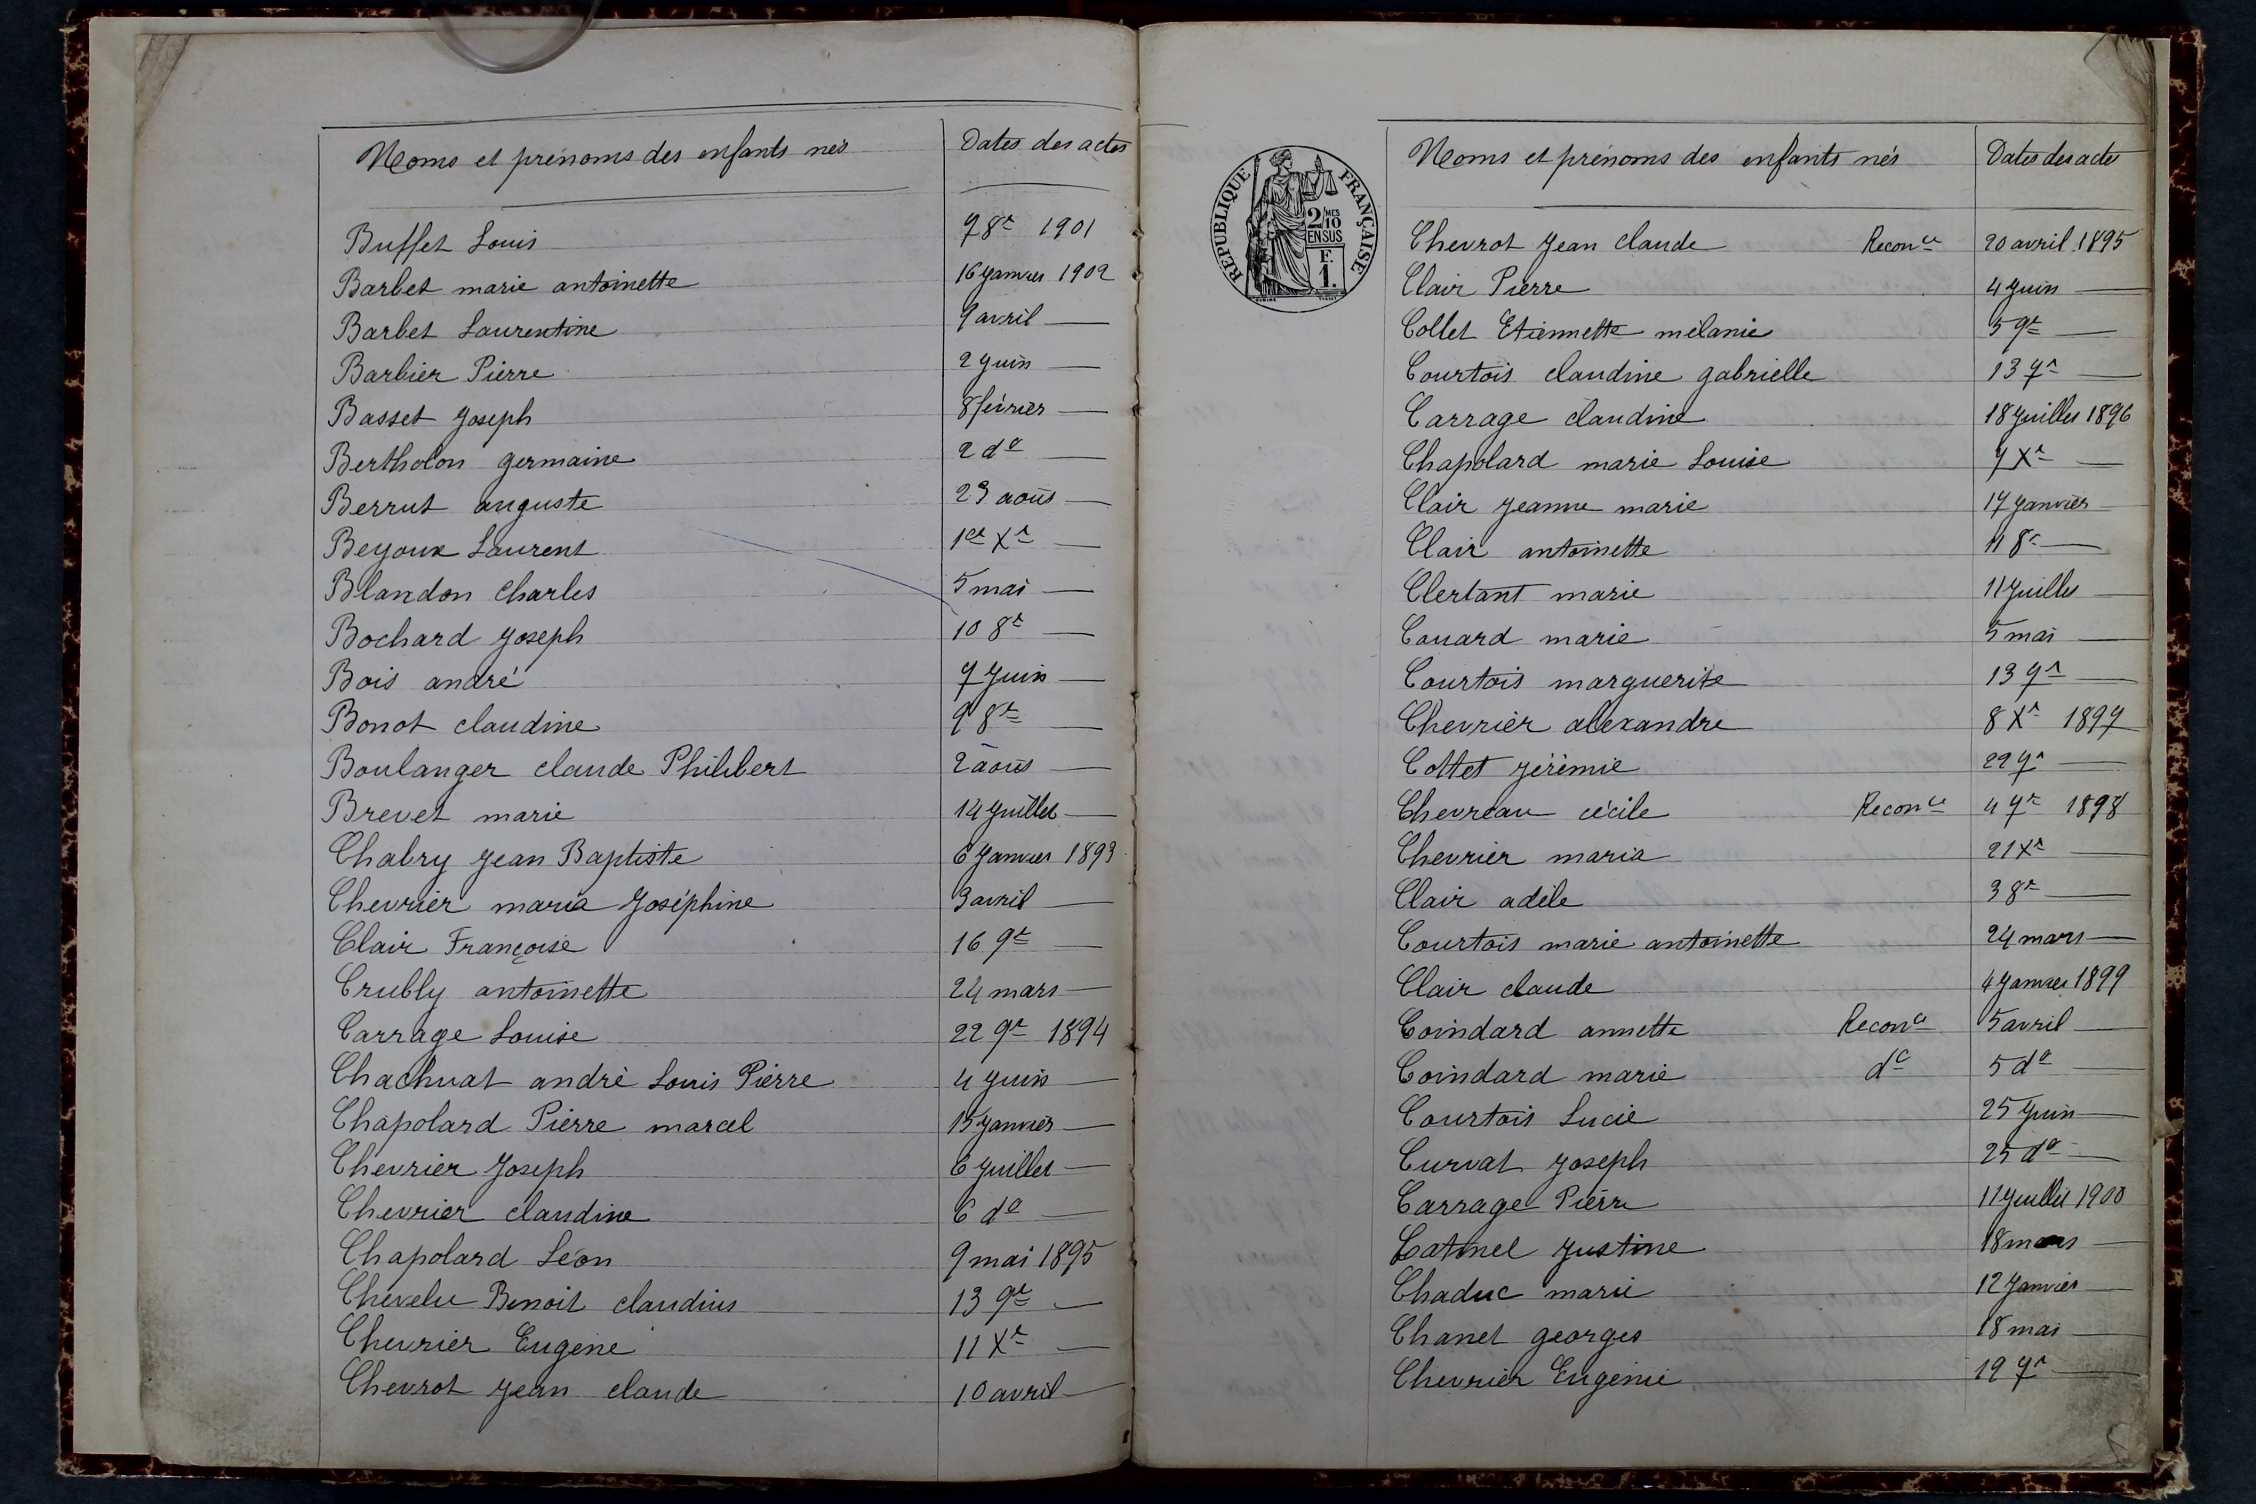 Noms et prénoms des enfants nés Dates des actes
Buffet Louis 7 8re 1901
Barbet marie antoinette 16 janvier 1902
Barbet Laurentine 9 avril —
Barbier Pierre 2 juin —
Basset Joseph 8 février —
Bertholon germaine 2 do —
Berrut auguste 23 août —
Beyoux Laurent 1er Xre —
Blandon Charles 5 mai —
Bochard Joseph 10 8re —
Bois andré 7 juin —
Bonot claudine 9 8re —
Boulanger claude Philibert 2 août —
Brevet marie 14 juillet —
Chabry Jean Baptiste 6 janvier 1893
Chevrier maria Joséphine 3 avril —
Clair Françoise 16 9re —
Crubly antoinette 24 mars —
Carrage Louise 22 9re 1894
Chachuat andré Louis Pierre 4 juin —
Chapolard Pierre marcel 15 janvier —
Chevrier Joseph 6 juillet —
Chevrier claudine 6 do —
Chapolard Léon 9 mai 1895
Chevelu Benoit claudius 13 9re —
Chevrier Eugène 11 Xre —
Chevrot Jean claude 10 avril —
RÉPUBLIQUE FRANÇAISE
2/10 MES
EN SUS
F.
1.
Noms et prénoms des enfants nés Dates des actes
Chevrot Jean claude Reconce 20 avril 1895
Clair Pierre 4 juin —
Collet Etiennette mélanie 5 9re —
Courtois claudine gabrielle 13 7re —
Carrage claudine 18 juillet 1896
Chapolard marie Louise 7 Xre —
Clair Jeanne marie 17 janvier —
Clair antoinette 11 8re —
Clertant marie 11 juillet —
Couard marie 5 mai —
Courtois marguerite 13 9re —
Chevrier alexandre 8 Xre 1897
Cottet Jérémie 22 7re —
Chevreau cécile Reconce 4 7re 1898
Chevrier maria 21 Xre —
Clair adèle 3 8re —
Courtois marie antoinette 24 mars —
Clair claude 4 janvier 1899
Coindard annette Reconce 5 avril —
Coindard marie do 5 do —
Courtois Lucie 25 juin —
Curvat Joseph 25 do —
Carrage Pierre 11 juillet 1900
Catinel Justine 18 mars —
Chaduc marie 12 janvier —
Chanel georges 18 mai —
Chevrier Eugénie 19 7re —